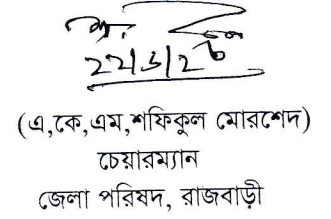 ২২/১/২৮
(এ,কে,এম,শফিকুল মোরশেদ)
চেয়ারম্যান
জেলা পরিষদ, রাজবাড়ী